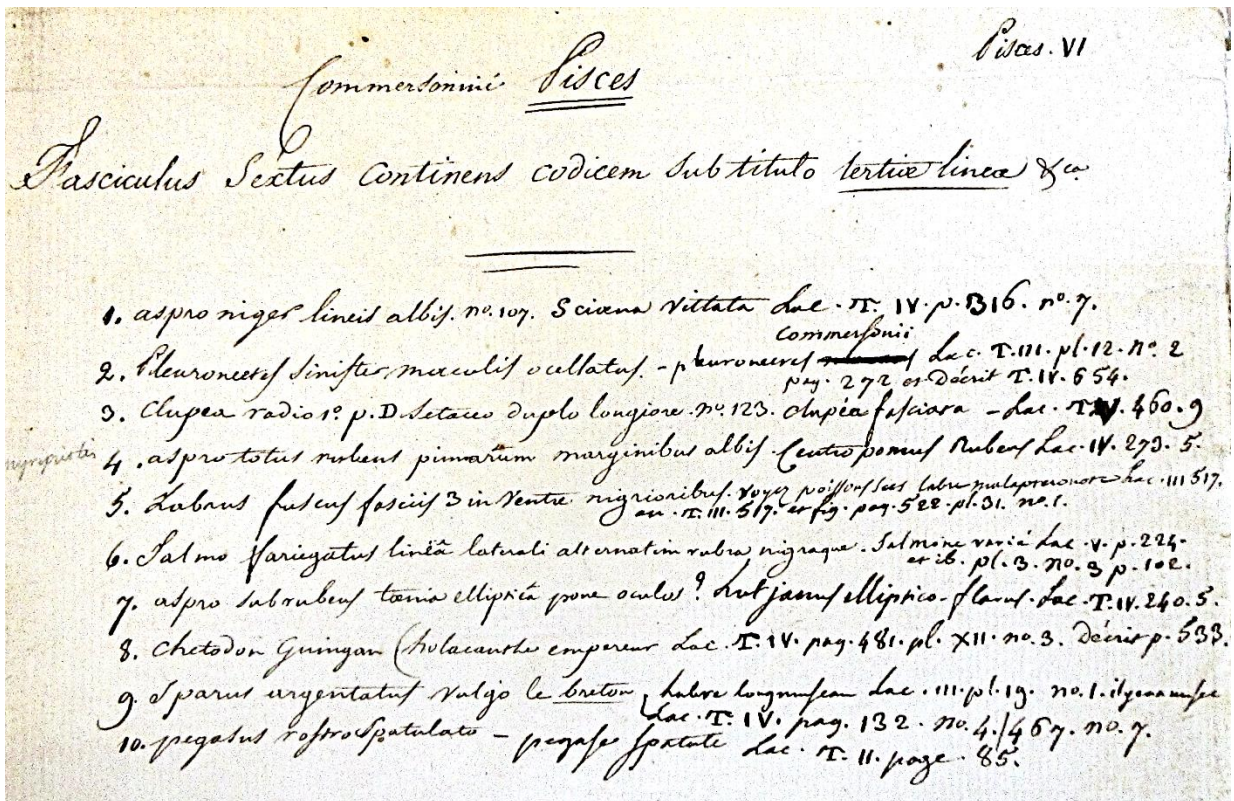 Pisces. VI
Commersonii Pisces
Fasciculus Sextus Continens codicem sub titulo tertiæ lineæ &ca
1. aspro niger lineis albis. no. 107. Sciæna Vittata Lac. T. IV. p. 316. no. 7.
Commersonii
2. Pleuronectes sinister maculis ocellatus. - pleuronectes Lac. T. III. pl. 12. no. 2
pag. 272 et Décrit T. IV. 654.
3. Clupea radio 1o. p. D setaceo duplo longiore. no. 123. clupéa fasciara - Lac. T. V. 460. 9
4. aspro totus rubens pinnarum marginibus albis. Centropomus Rubens Lac. IV. 273. 5.
5. Labrus fuscus fasciis 3 in ventre nigrioribus. voyez poissons secs labre malapteronote Lac. III 517.
au. T. III. 517. et fig. pag. 522. pl. 31. no. 1.
6. Salmo variegatus lineâ laterali alternatim rubra nigraque. Salmone varié Lac. V. p. 224.
et ib. pl. 3. no. 3 p. 102.
7. aspro subrubens tænia elliptica pone oculos? Lutjanus elliptico-flavus. Lac. T. IV. 240. 5.
8. Chetodon Guingan (holacanthe empereur Lac. T. IV. pag. 481. pl. XII. no. 3. Décrit p. 533.
9. Sparus argentatus vulgo le breton, labre longmuseau Lac. III. pl. 19. no. 1.
Lac. T. IV. pag. 132. no. 4./467. no. 7.
10. pegasus rostro Spatulato - pegase spatule Lac. T. II. page. 85.